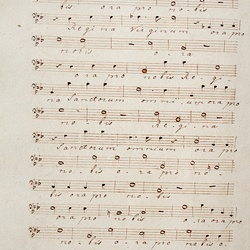 bis ora pro nobis
Regina Virginum ora pro
nobis ora
ora pro nobis Regi
na Sanctorum omnium ora pro
nobis Regina
Sanctorum omnium ora pro
nobis ora pro no
bis ora pro nobis
ora pro nobis ora pro
nobis ora pro nobis